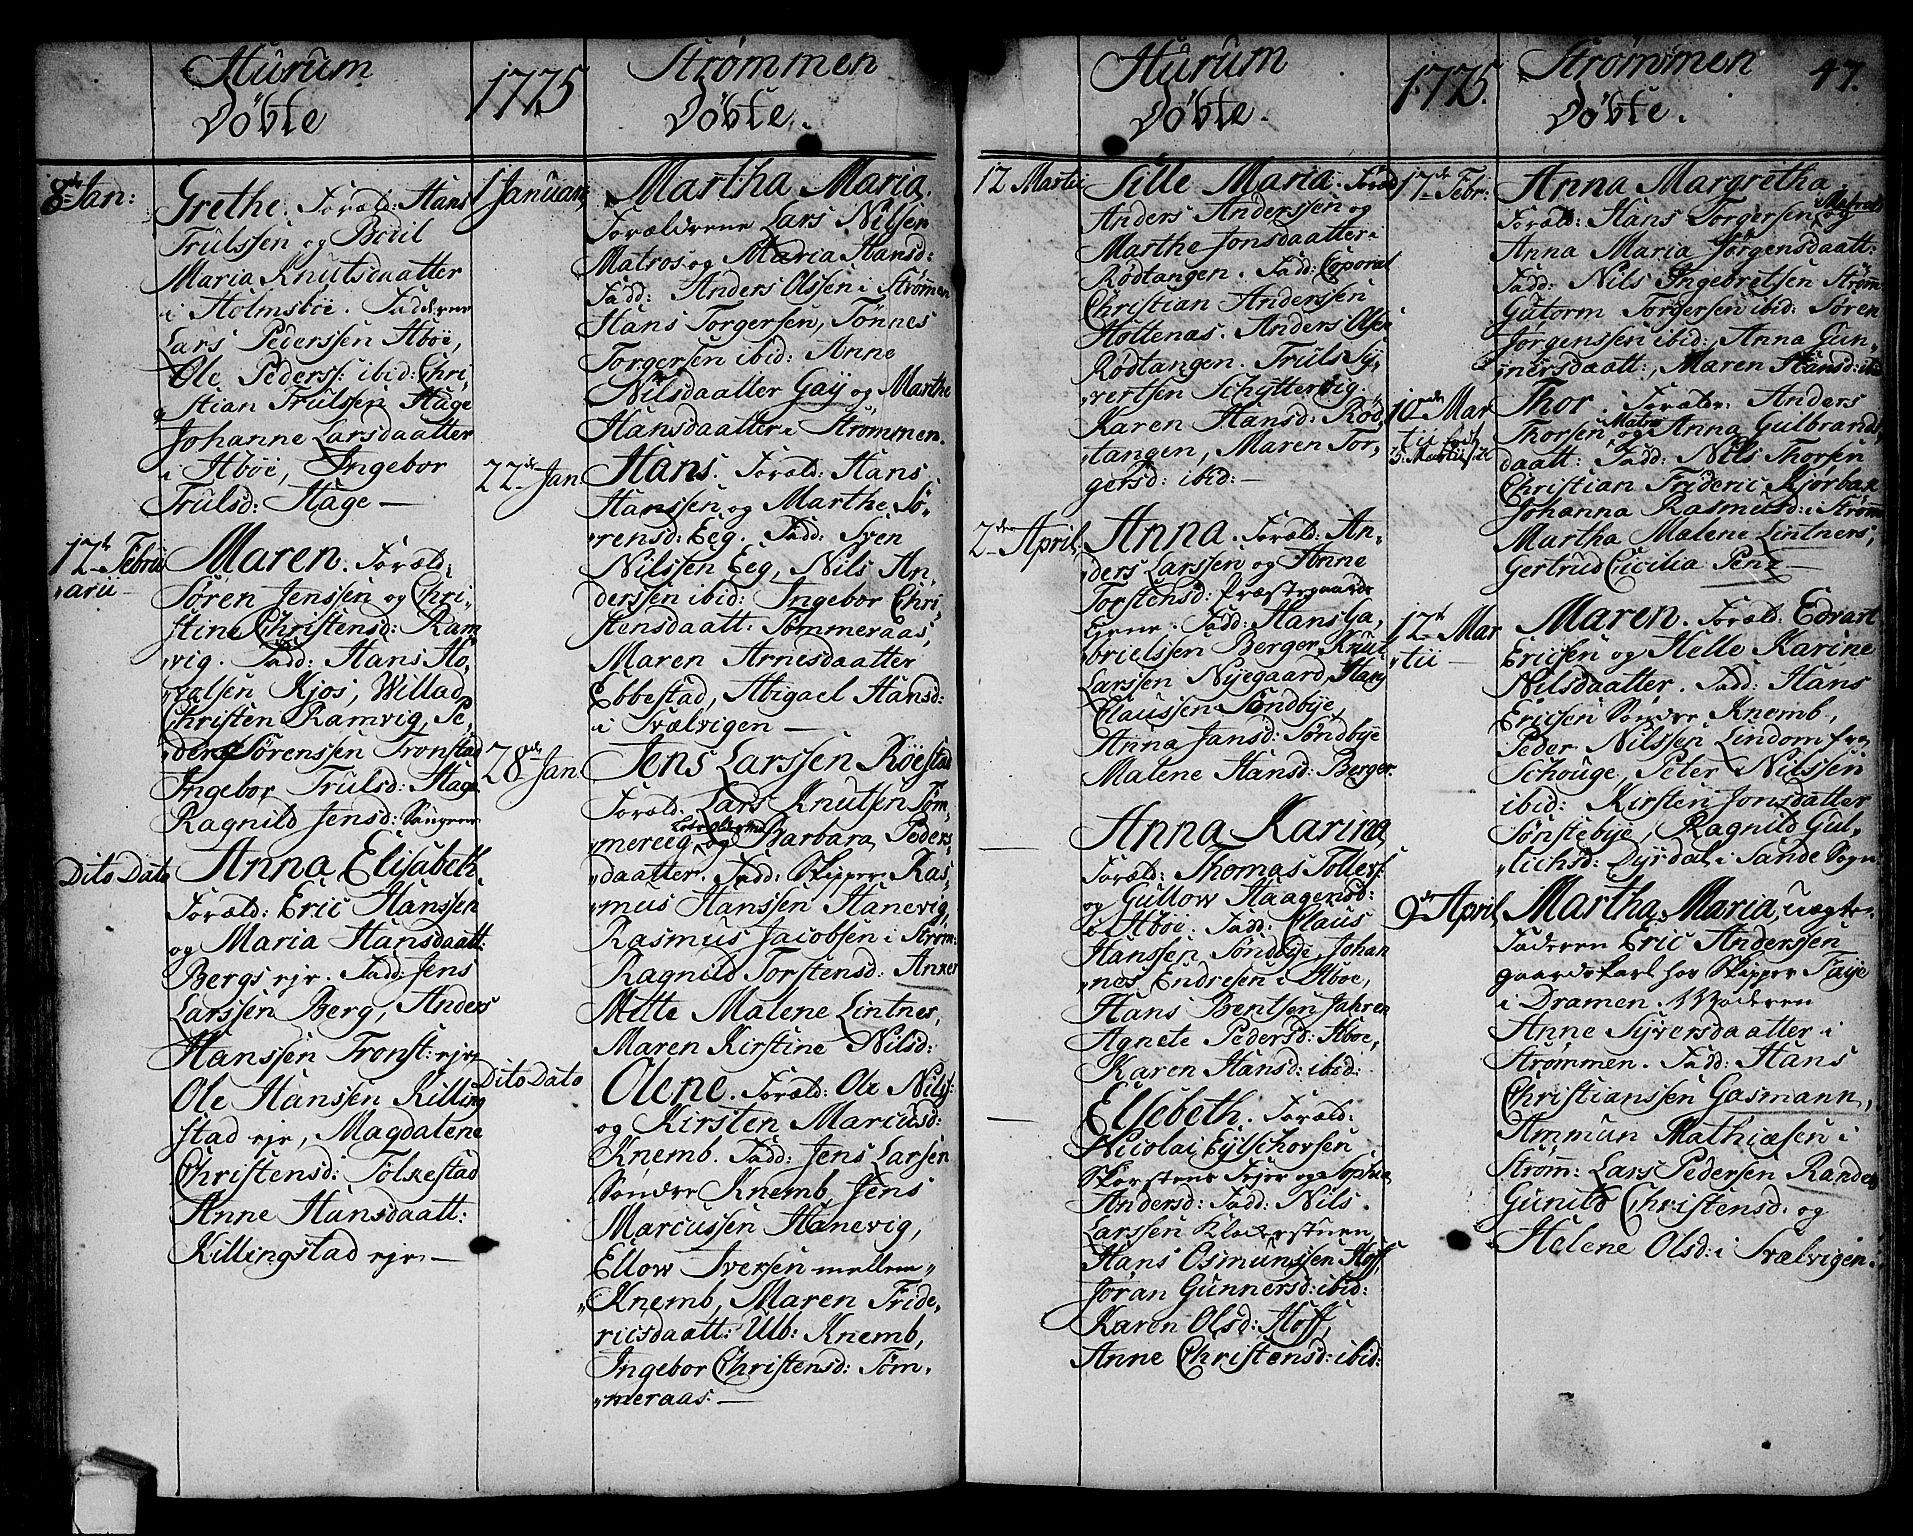 Hurum
Döbte
1775
Strømmen
Döbte.
8de Jan:
Grethe. Foræld: Hans
Trulssen og Bodil
Maria Knutsdaatter
i Holmsböe. Fadderne
Lars Pederssen Aböe,
Ole Pederss: ibid: Chri-
stian Trulssen Hage
Johanne Larsdaatter
i Aböe, Ingebor
Trulsd: Hage —
12te Febru
"arii —
Maren. Foræld:
Sören Jenssen og Chri-
stine Christensd: Ram
"vig. Fadd: Hans Ho,
"valsen Kjos, Willad
Christen Ramvig, Pe,
"der Sörenssen Tronstad
Ingebor Trulsd: Hage
Ragnild Jensd:
Dito Dato
Anna Elisabeth.
Foræld: Eric Hanssen
og Maria Hansdaatt:
Bergs ejr. Fadd: Jens
Larssen Berg, Anders
Hanssen Tronst: ejr
Ole Hanssen Killing
stad ejr, Magdalene
Christensd: Tolkestad
Anne Hansdaatt:
Killingstad ejr —
1 Januarii
Martha Maria.
Forældrene Lars Nilsen
Matros og Maria Hansd:
Fadd: Anders Olssen i Strömen
Hans Torgersen, Tönnes
Torgersen ibid: Anne
Nilsdaatter Gaÿ og Marthe
Hansdaatter i Strømmen.
22de Jan
Hans. Foræld: Hans
Hanssen og Marthe Sö,
"rensd: Eeg. Fadd: Sven
Nilssen Eeg, Nils An,
derssen ibid: Ingebor Chri,
stensdaatt: Tømmeraas,
Maren Arnesdaatter
Ebbestad, Abigael Hansd:
i Svælvigen —
28de Jan.
Jens Larssen Röestad
Foræld: Lars Knutsen Töm
"mereeg og Barbara Peders,
"daatter. Fadd: Skipper Ras,
"mus Hanssen Hanevig,
Rasmus Jacobsen i Ström:
Ragnild Torstensd: Anker
Mette Malene Lintner,
Maren Kirstine Nilsd:
Dito Dato
Olene. Foræld: Ole Nilss:
og Kirsten Marcusd:
Knemb. Fadd: Jens Larsen
Söndre Knemb, Jens
Marcussen Hanevig,
Ellow Iversen mellem"
"Knemb, Maren Fride,
ricsdaatt: Ulb: Knemb,
Ingebor Christensd: Töm,
"meraas. —
Hurum
Döbte.
1775.
Strømmen
Döbte.
47.
12 Martii
Sille Maria. Foræld
Anders Anderssen og
Marthe Jonsdaatter i
Rödtangen. Fadd: Corporal
Christian Anderssen
Holtenas. Anders Olsen
Rödtangen. Truls Sy,
"vertsen Schyttervig.
Karen Hansd: Röd,
"tangen, Maren Tor,
gersd: ibid: —
2den April,
Anna. Foræld: An,
ders Larssen og Anne
Torstensd: Præstegaards
Ejerne. Fadd: Hans Ga,
"brielssen Berger, Knut
Larssen Nyegaard, Hans
Claussen Söndbye,
Anna Jansd: Söndbye
Malene Hansd: Berger.
—
Anna Karina
Foræld: Thomas Tollefs:
og Gullow Haagensd:
i Aböe. Fadd: Claus
Hanssen Söndbye, Johan
"nes Endresen i Aboe,
Hans Bentsen Jahren
Agnete Pedersd: Aboe,
Karen Hansd: ibid:
—
Elsebeth. Foræld:
Nicolai Eylschovsen
Skorstens Fejer og Sophie
Andersd: Fadd: Nils
Larssen Kloderstuen
Hans Osmunssen Hoff,
Joran Gunnersd: ibid:
Karen Olsd: Hoff,
Anne Christensd: ibid:
17de Febr:
Anna Margretha.
Foræld: Hans Torgersen Matros og
Anna Maria Jörgensdaatt:
Fadd: Nils Ingebretsen Strömm
Gutorm Torgersen ibid: Sören
Jørgenssen ibid: Anna Gun-
"nersdaatt: Maren Hansd: ibid
10de Mar
tii
Thor. Foræld: Anders
Thorsen Matros og Anna Gulbrands,
daatt: Fadd: Nils Thorsen
Christian Frideric Kjörbak
Johanna Rasmusd: i Strömm
Martha Malene Lintners,
Gertrud Cicilia Penz —
12te Mar
"tii —
Maren. Foræld: Edvart
Ericsen og Helle Karine
Nilsdaatter. Fadd: Hans
Ericsen Söndre Knemb,
Peder Nilssen Lindom fra
Schouge, Peter Nilssen
ibid: Kirsten Jonsdatter
Sönstebye, Ragnild Gul,
"lichsd: Dyrdal i Sande Sogn.
9de April,
Martha Maria, uægte.
Faderen Eric Anderssen
gaardskarl hos Skipper Faÿe
i Dramen. Moderen
Anne Syversdaatter i
Strømmen. Fadd: Hans
Christianssen Gasmann,
Ammun Mathiæsen i
Strøm: Lars Pedersen Rande,
Gunild Christensd: og
Helene Olsd: i Svælvigen.